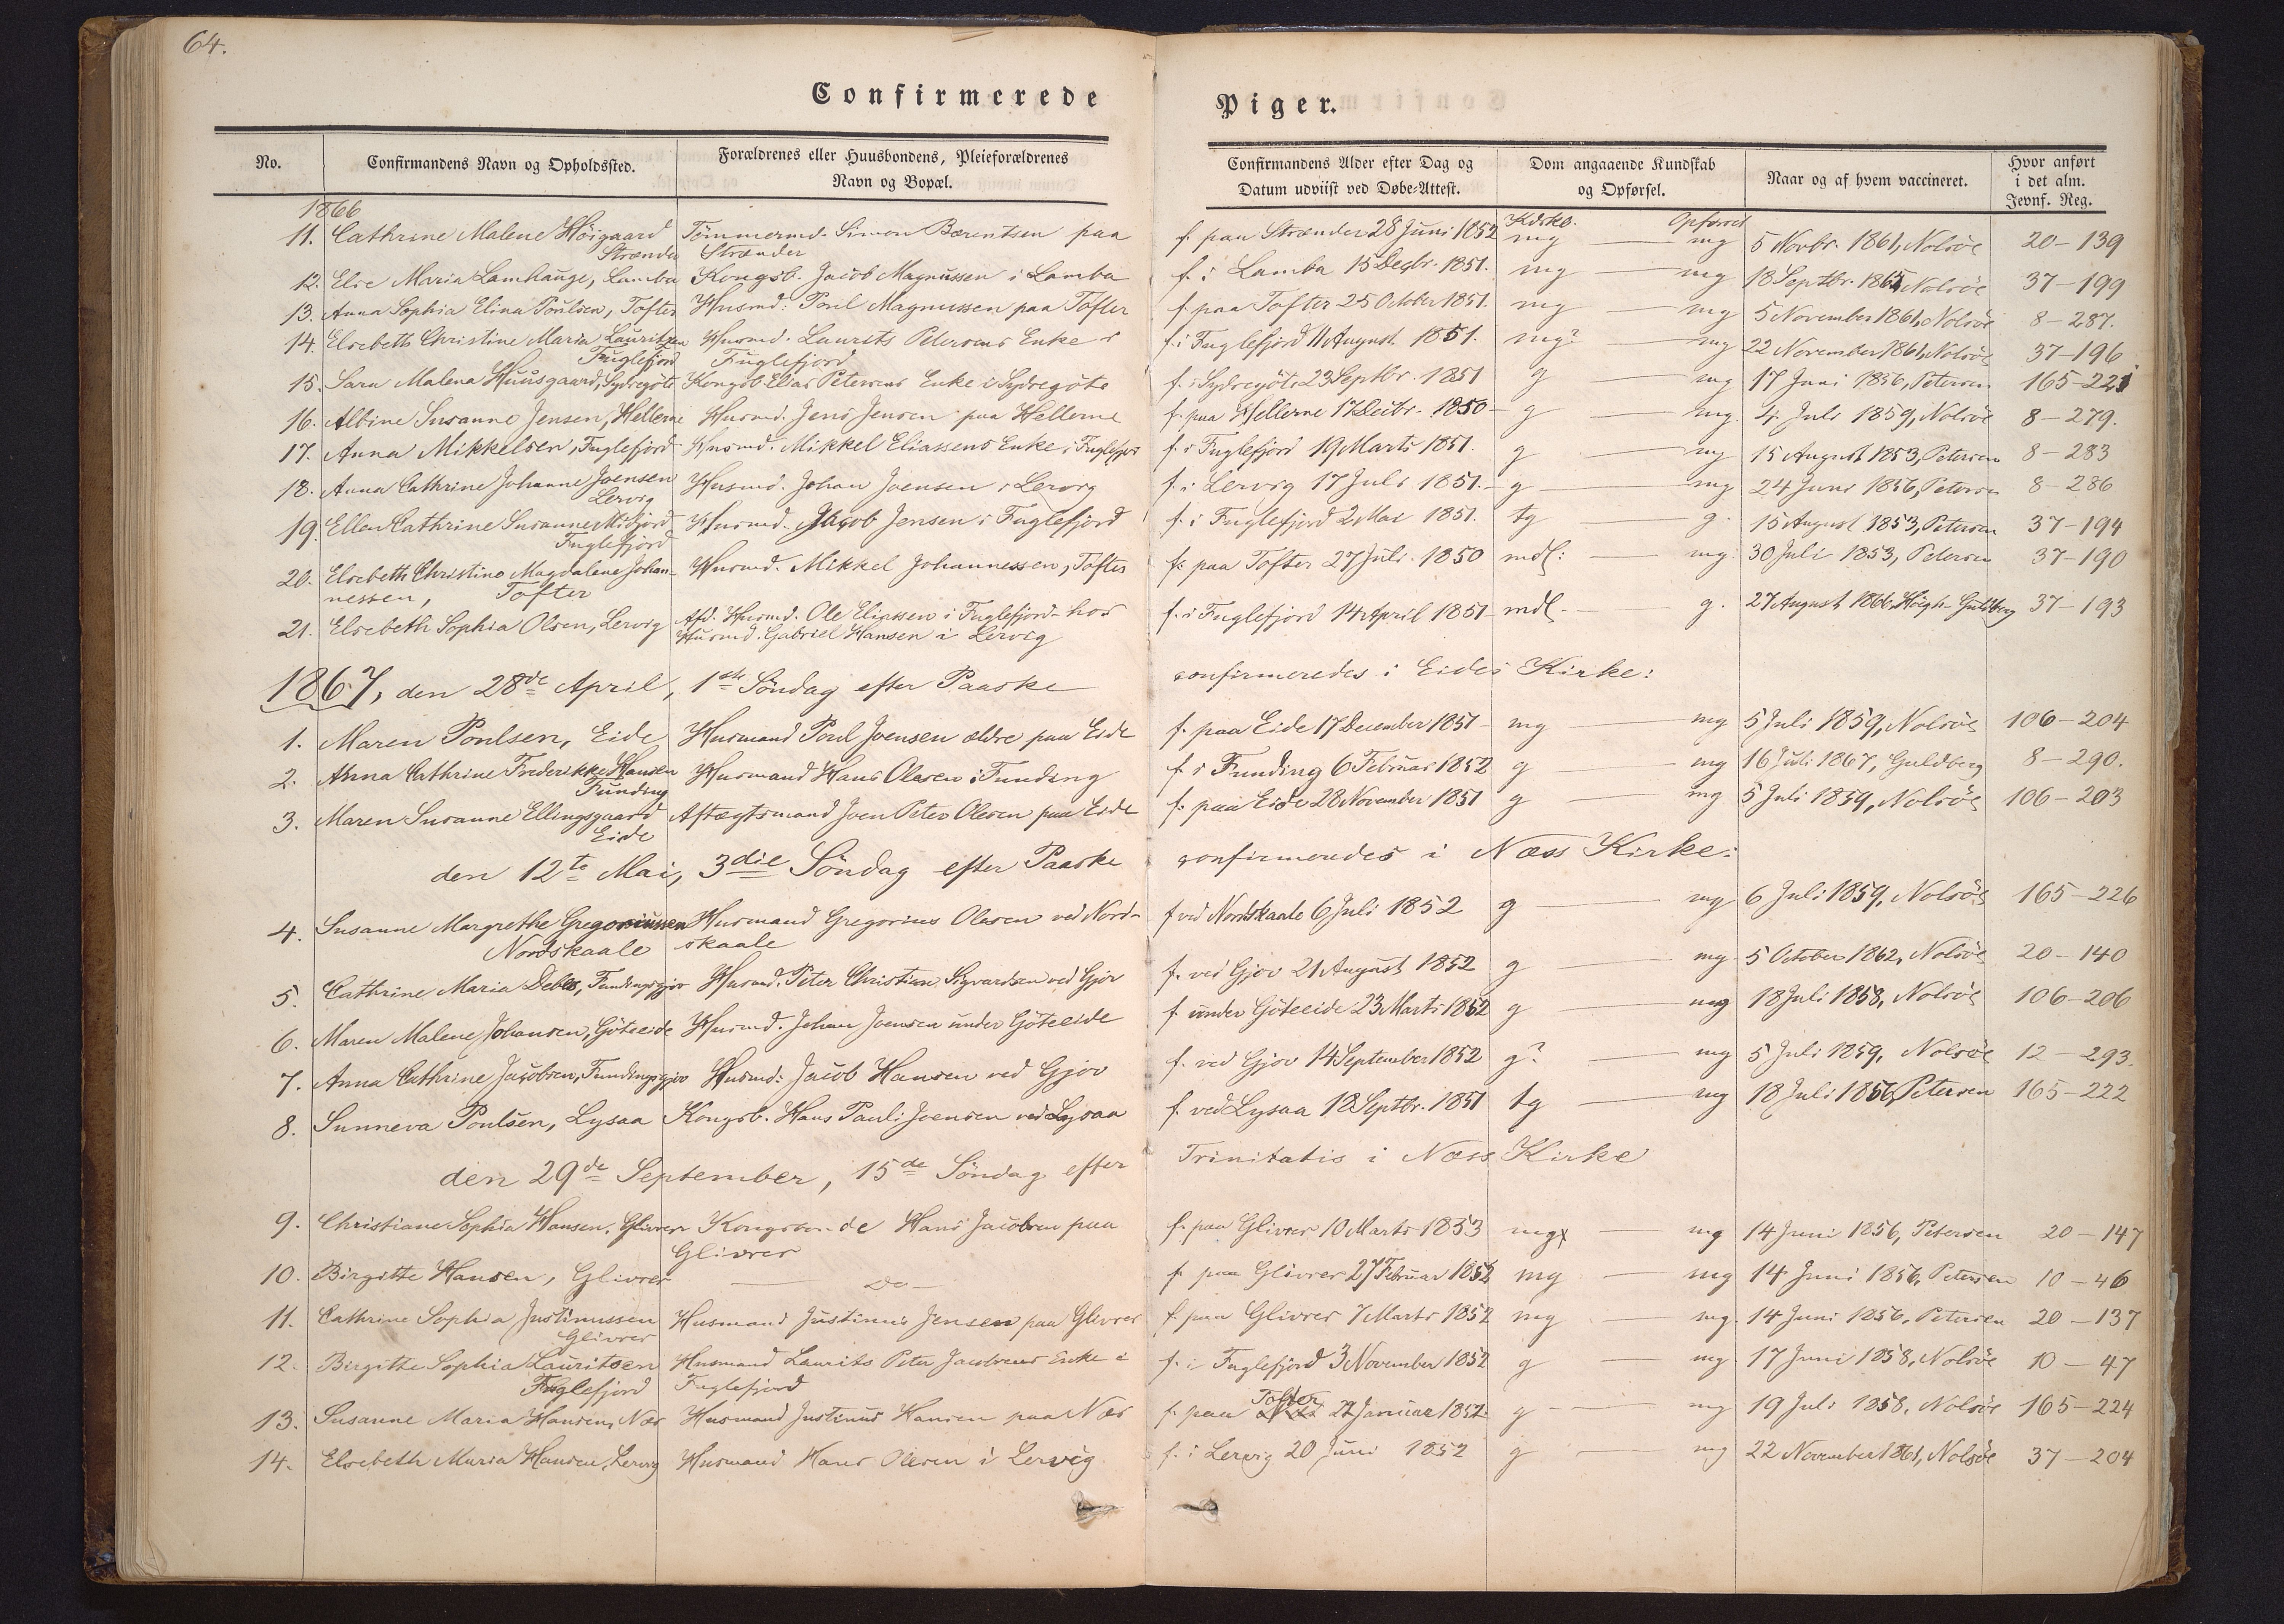 64.
Confirmerede Piger.
No. Confirmandens Navn og Opholdssted. Forældrenes eller Huusbondens, Pleieforældrenes Navn og Bopæl. Confirmandens Alder efter Dag og Datum udviist ved Døbe-Attest. Dom angaaende Kundskab og Opførsel. Naar og af hvem vaccineret. Hvor anført i det alm. Jevnf. Reg.
1866 Kdskb. Opførsel
11. Cathrine Malene Höigaard Tömmermd. Simon Bærentsen paa f. paa Strænder 28 Juni 1852 mg — mg 5 Novbr. 1861, Nolsöe 20-139
Strænder Strænder
12. Else Maria Lamhauge, Lamba Kongsb. Jacob Magnussen i Lamba f. i Lamba 15 Decbr. 1851. mg — mg 18 Septbr. 1865, Nolsöe 37-199
13. Anna Sophia Elina Poulsen, Tofter Husmd: Poul Magnussen paa Tofter f. paa Tofter 25 October 1851. mg — mg 5 November 1861, Nolsöe 8-287.
14. Elsebeth Christine Maria Lauritzen Husmd. Laurits Petersens Enke i f. i Fuglefjord 11 August 1851. mg? — mg 22 November 1861, Nolsöe 37-196
Fuglefjord Fuglefjord
15. Sara Malena Huusgaard, Sydregöte Kongsb. Elias Petersens Enke i Sydregöte f. i Sydregöte 23 Septbr. 1851 g — mg 17 Juni 1856, Petersen 165-221
16. Albine Susanne Jensen, Hellerne Husmd. Jens Jensen paa Hellerne f. paa Hellerne 17 Decbr. 1850- g — mg. 4. Juli 1859, Nolsöe 8-279.
17. Anna Mikkelsen, Fuglefjord Husmd. Mikkel Eliassens Enke i Fuglefjord f. i Fuglefjord 19 Marts 1851. g — mg 15 August 1853, Petersen 8-283
18. Anna Cathrine Johanne Joensen Husmd. Johan Joensen i Lervig f. i Lervig 17 Juli 1851.- g — mg 24 Juni 1856, Petersen 8-286
Lervig
19. Ellen Cathrine Susanne Midfjord Husmd. Jacob Jensen i Fuglefjord f. i Fuglefjord 2 Mai 1851. tg — g. 15 August 1853, Petersen 37-194
Fuglefjord
20. Elsebeth Christine Magdalene Johan- Husmd. Mikkel Johannessen, Tofter f. paa Tofter 27 Juli 1850 mdl: — mg 30 Juli 1853, Petersen 37-190
nessen, Tofter
21. Elsebeth Sophia Olsen, Lervig Afd. Husmd. Ole Eliassen i Fuglefjord- hos f. i Fuglefjord 14 April 1851- mdl. — g. 27 August 1866, Höegh-Guldberg 37-193
Husmd. Gabriel Hansen i Lervig
1867, den 28de April, 1ste Söndag efter Paaske confirmeredes i Eides Kirke:
1. Maren Poulsen, Eide Husmand Poul Joensen ældre paa Eide f. paa Eide 17 December 1851- mg — mg 5 Juli 1859, Nolsöe 106-204
2. Anna Cathrine Frederikke Hansen Husmand Hans Olesen i Funding f. i Funding 6 Februar 1852 g — mg 16 Juli 1867, Guldberg 8-290.
Funding
3. Maren Susanne Ellingsgaard Aftægtsmand Joen Peter Olesen paa Eide f. paa Eide 28 November 1851 g — mg 5 Juli 1859, Nolsöe 106-203
Eide
den 12te Mai, 3die Söndag efter Paaske confirmeredes i Næss Kirke:
4. Susanne Margrethe Gregoriussen Husmand Gregorius Olesen ved Nord- f. ved Nordskaale 6 Juli 1852 g — mg 6 Juli 1859, Nolsöe 165-226
Nordskaale skaale
5. Cathrine Maria Debes, Fundingsgjov Husmd. Peter Christian Sigvardsen ved Gjov f. ved Gjov 21 August 1852 g — mg 5 October 1862, Nolsöe 20-140
6. Maren Malene Johansen, Göteeide Husmd. Johan Joensen under Göteeide f. under Göteeide 23 Marts 1852 g — mg 18 Juli 1858, Nolsöe 106-206
7. Anna Cathrine Jacobsen, Fundingsgjov Husmd: Jacob Hansen ved Gjov f. ved Gjov 14 September 1852 g? — mg 5 Juli 1859, Nolsöe 12-293.
8. Sunneva Poulsen, Lysaa Kongsb. Hans Pauli Joensen ved Lysaa f. ved Lysaa 18 Septbr. 1851 tg — mg 18 Juli 1856, Petersen 165-222
den 29de September, 15de Söndag efter Trinitatis i Næss Kirke
9. Christiane Sophia Hansen, Glivrer Kongsbonde Hans Jacobsen paa f. paa Glivrer 10 Marts 1853 mgx — mg 14 Juni 1856, Petersen 20-147
Glivrer
10. Birgitte Hansen, Glivrer — Do — f. paa Glivrer 27 Februar 1852 mg — mg 14 Juni 1856, Petersen 10-46
11. Cathrine Sophia Justinussen Husmand Justinus Jensen paa Glivrer f. paa Glivrer 7 Marts 1852 mg — mg. 14 Juni 1856, Petersen 20-137
Glivrer
12. Birgitte Sophia Lauritsen Husmand Laurits Peter Jacobsens Enke i f. i Fuglefjord 3 November 1852 g — mg 17 Juni 1858, Nolsöe 10-47
Fuglefjord Fuglefjord
Tofter
13. Susanne Maria Hansen, Næs Husmand Justinus Hansen paa Næs f. paa Næs 27 Januar 1852 g — mg 19 Juli 1858, Nolsöe 165-224
14. Elsebeth Maria Hansen, Lervig Husmand Hans Olesen i Lervig f. i Lervig 20 Juni 1852 g — mg 22 November 1861, Nolsöe 37-204